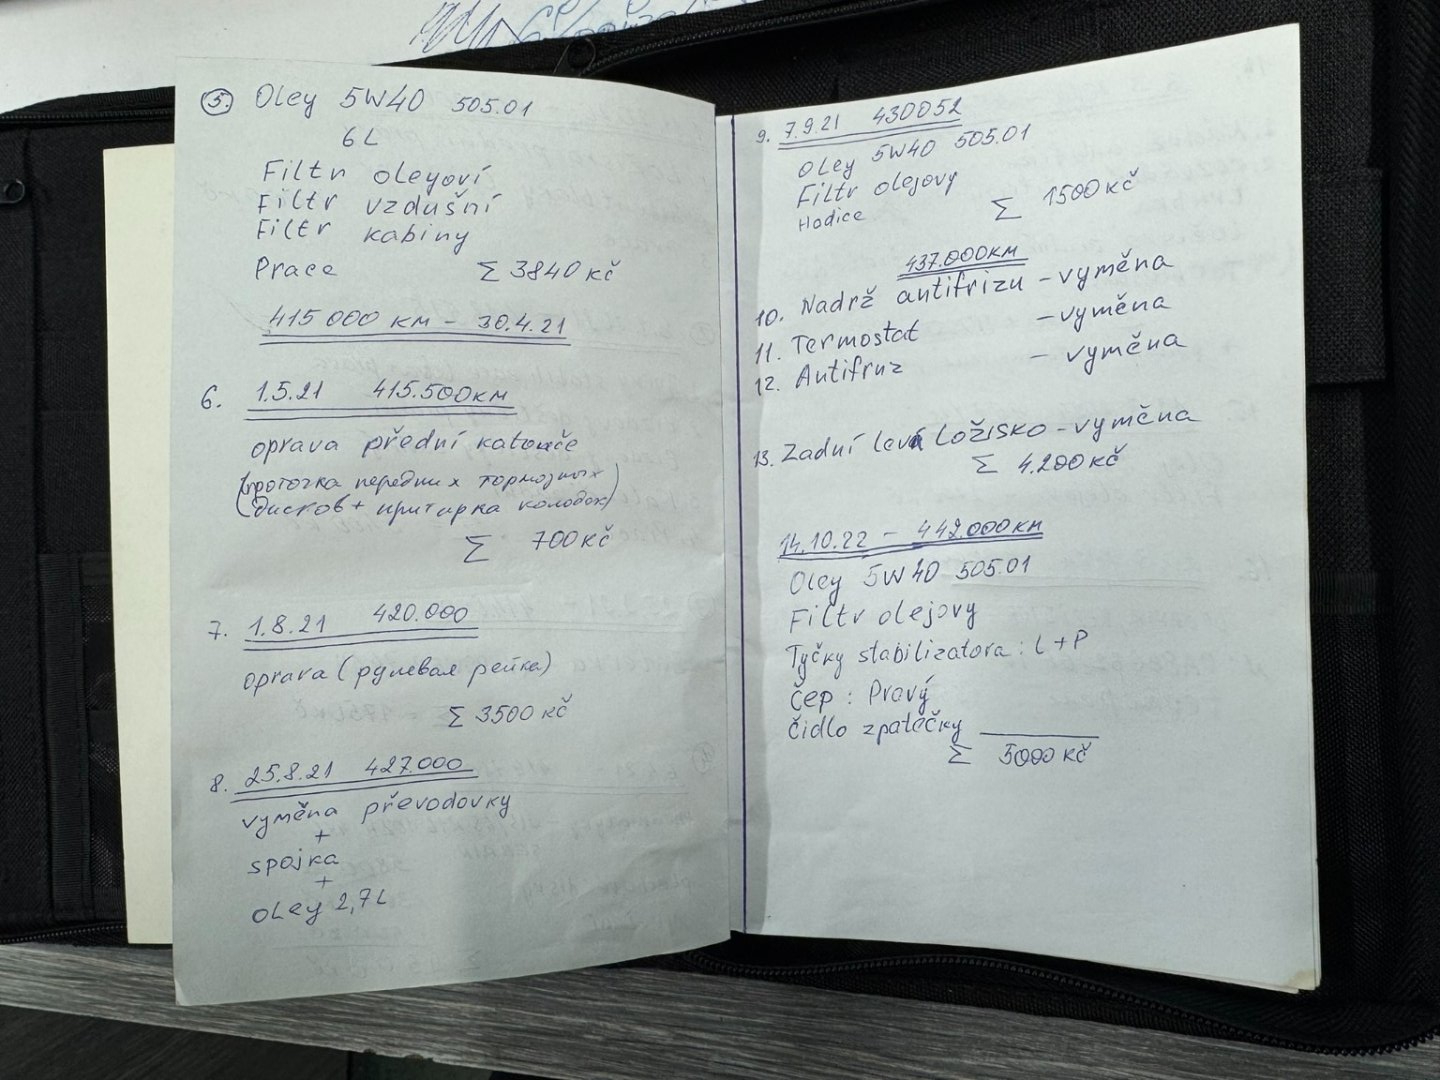 5. Oley 5W40 505.01
6L
Filtr oleyoví
Filtr vzdušní
Filtr kabiny
Prace Σ 3840 kč
415 000 км - 30.4.21
6. 1.5.21 415.500км
oprava přední katouče
(проточка передних тормозных
дисков + притирка колодок)
Σ 700 kč
7. 1.8.21 420.000
oprava (рулевая рейка)
Σ 3500 kč
8. 25.8.21 427.000
vyměna převodovky
+
spojka
+
oley 2,7L
9. 7.9.21 430052
oley 5W40 505.01
Filtr olejovy
Hadice Σ 1500 kč
437.000км
10. Nadrž antifrizu - vyměna
11. Termostat - vyměna
12. Antifruz - vyměna
13. Zadní levá Ložisko - vyměna
Σ 4.200 kč
14.10.22 - 442.000км
Oley 5W40 505.01
Filtr olejovy
Tyčky stabilizatora : L + P
čep : Pravý
čidlo zpatečky
Σ 5000 kč